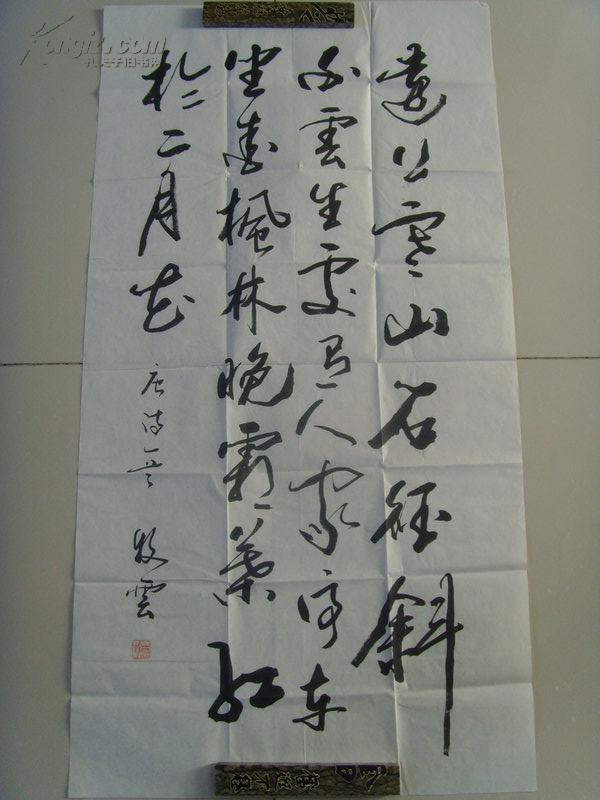 遠上寒山石徑斜
白雲生處有人家停车
坐愛楓林晚霜葉红
於二月花
唐诗一首 牧雲
Kongfz.com
孔夫子旧书网